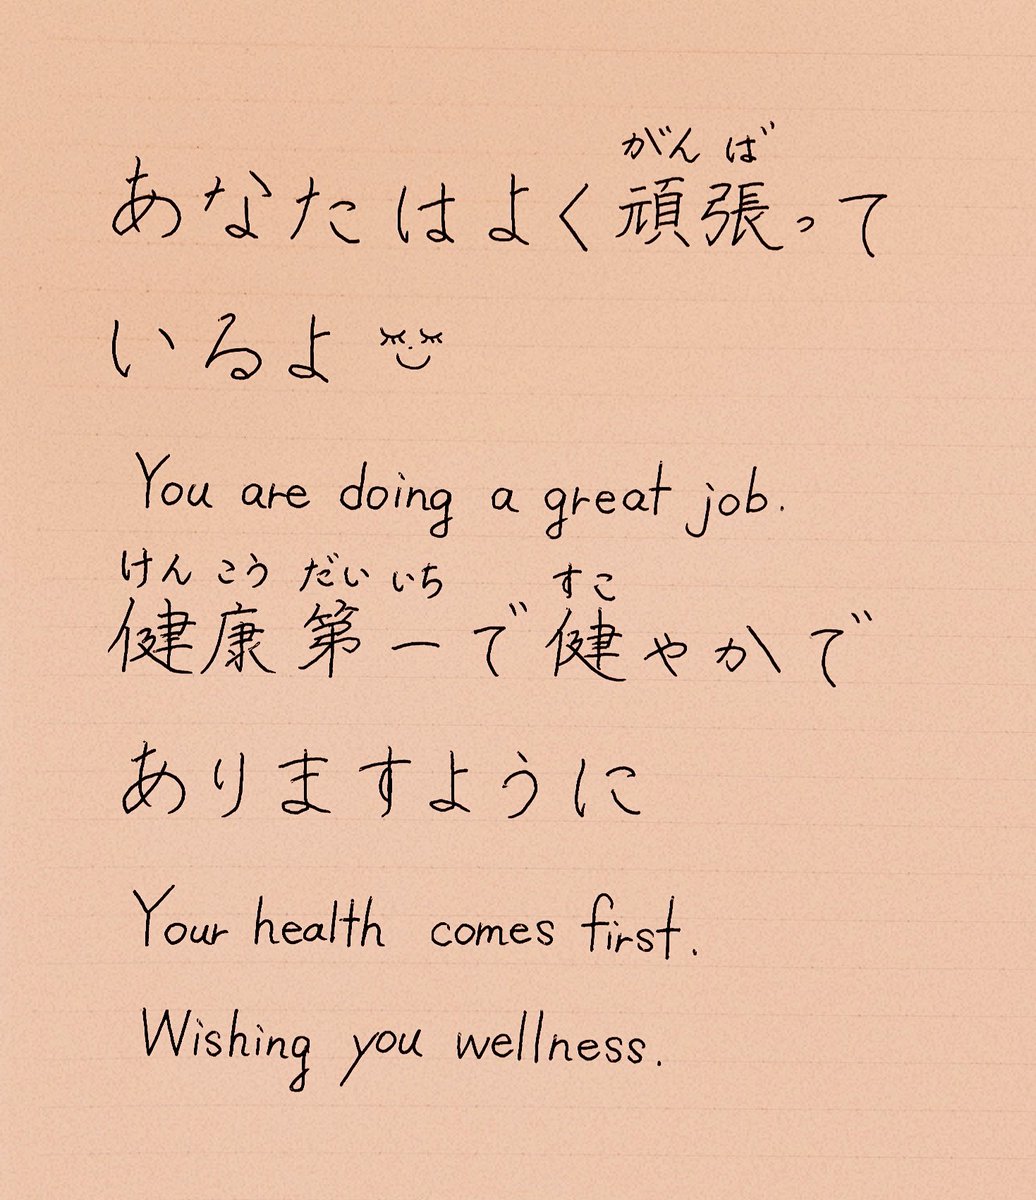 がんば
あなたはよく頑張って
いるよ
You are doing a great job.
けんこうだいいち すこ
健康第一で健やかで
ありますように
Your health comes first.
Wishing you wellness.